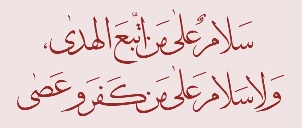 سَلَامٌ عَلَىٰ مَنِ اتَّبَعَ الهدىٰ،
وَلَا سَلَامَ عَلَىٰ مَن كَفَرَ وعَصَىٰ